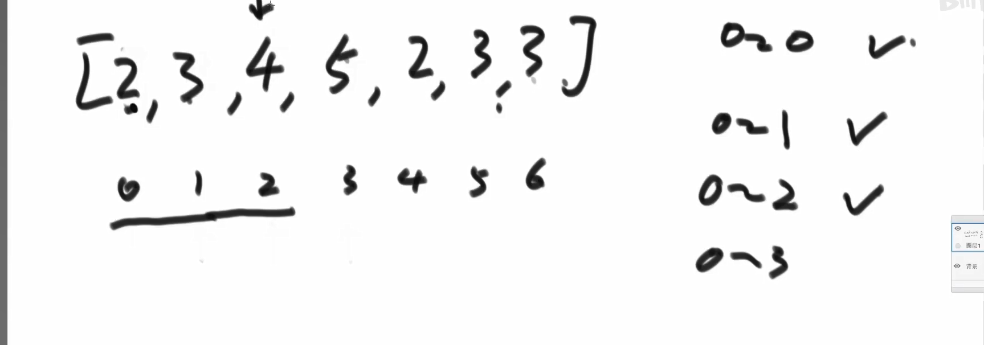 [2, 3, 4, 5, 2, 3, 3]
0 1 2 3 4 5 6
0~0 ✓
0~1 ✓
0~2 ✓
0~3